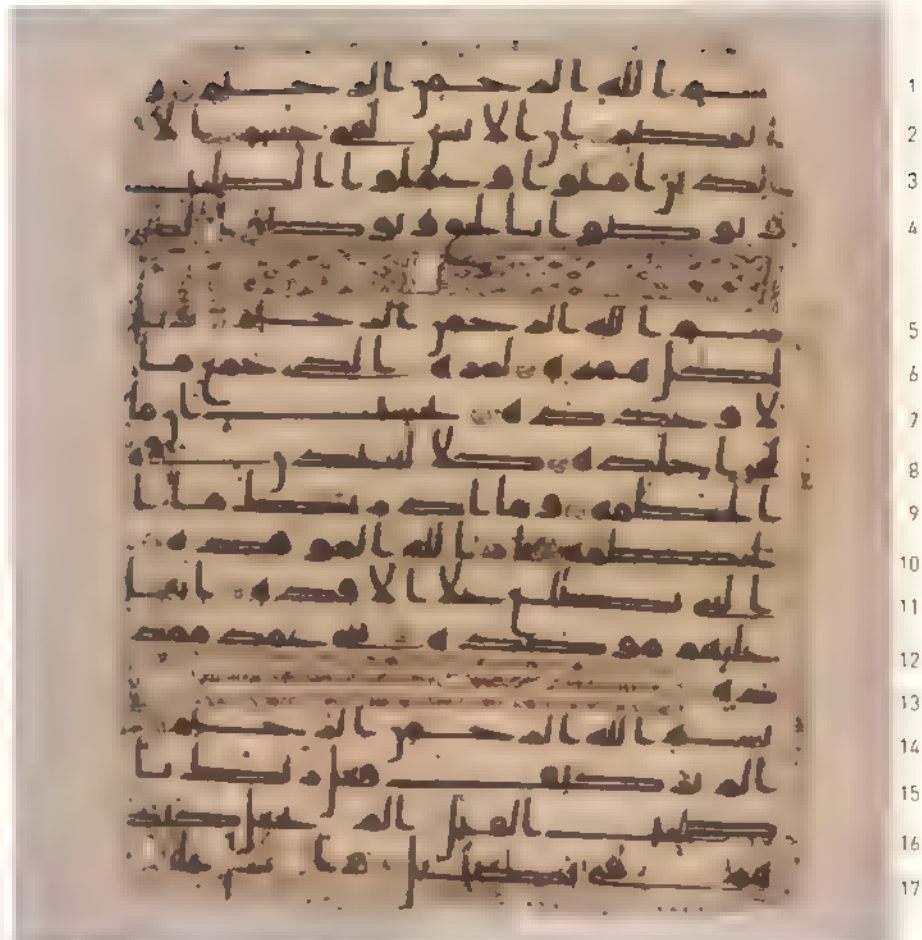 بسم الله الرحمن الرحيم و 1
العصر ان الانسن لفى خسر الا 2
الذين امنوا و عملوا الصلحت 3
و توصوا بالحق و توصوا بالصبر 4
بسم الله الرحمن الرحيم ويل 5
لكل همزة لمزة الذى جمع ما 6
لا و عدده يحسب ان ما 7
له اخلده كلا لينبذن فى 8
الحطمة و ما ادريك ما ا 9
لحطمة نار الله الموقدة 10
التى تطلع على الافئدة انها 11
عليهم موصدة فى عمد ممد 12
دة 13
بسم الله الرحمن الرحيم 14
الم تر كيف فعل ربك با 15
صحب الفيل الم يجعل كيد 16
هم فى تضليل و ارسل عليه 17